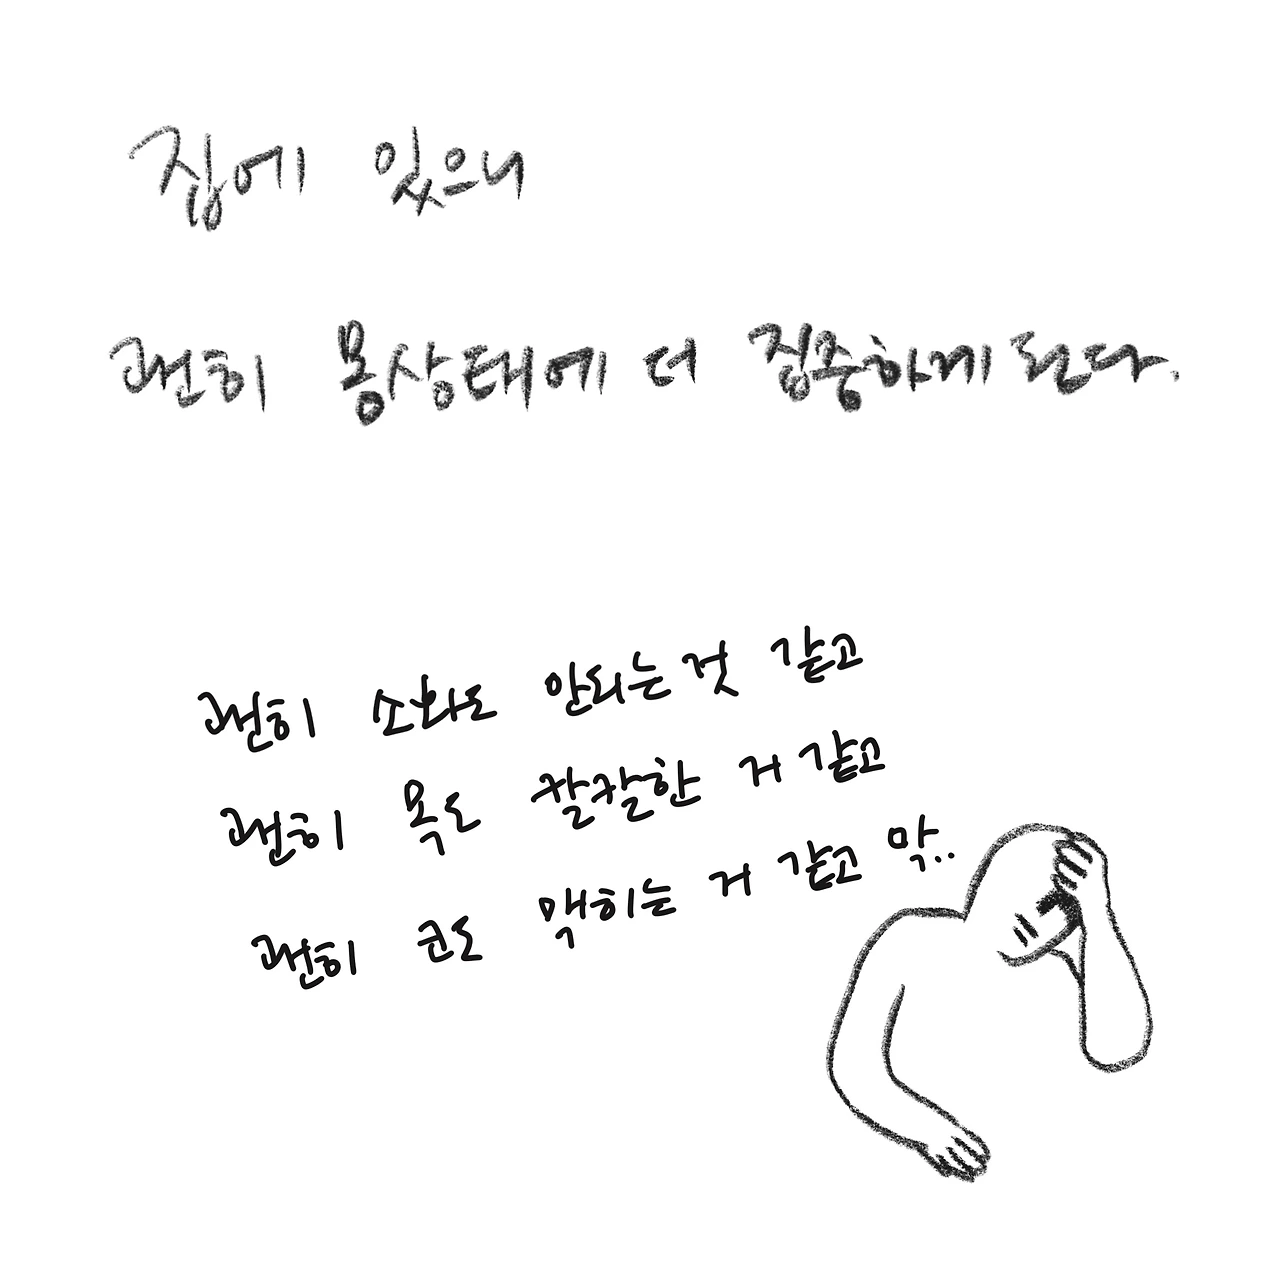 집에 있으니
괜히 몽상태에 더 집중하게 된다.
괜히 소화도 안되는 것 같고
괜히 목도 칼칼한 거 같고
괜히 코도 맥히는 거 같고 막..